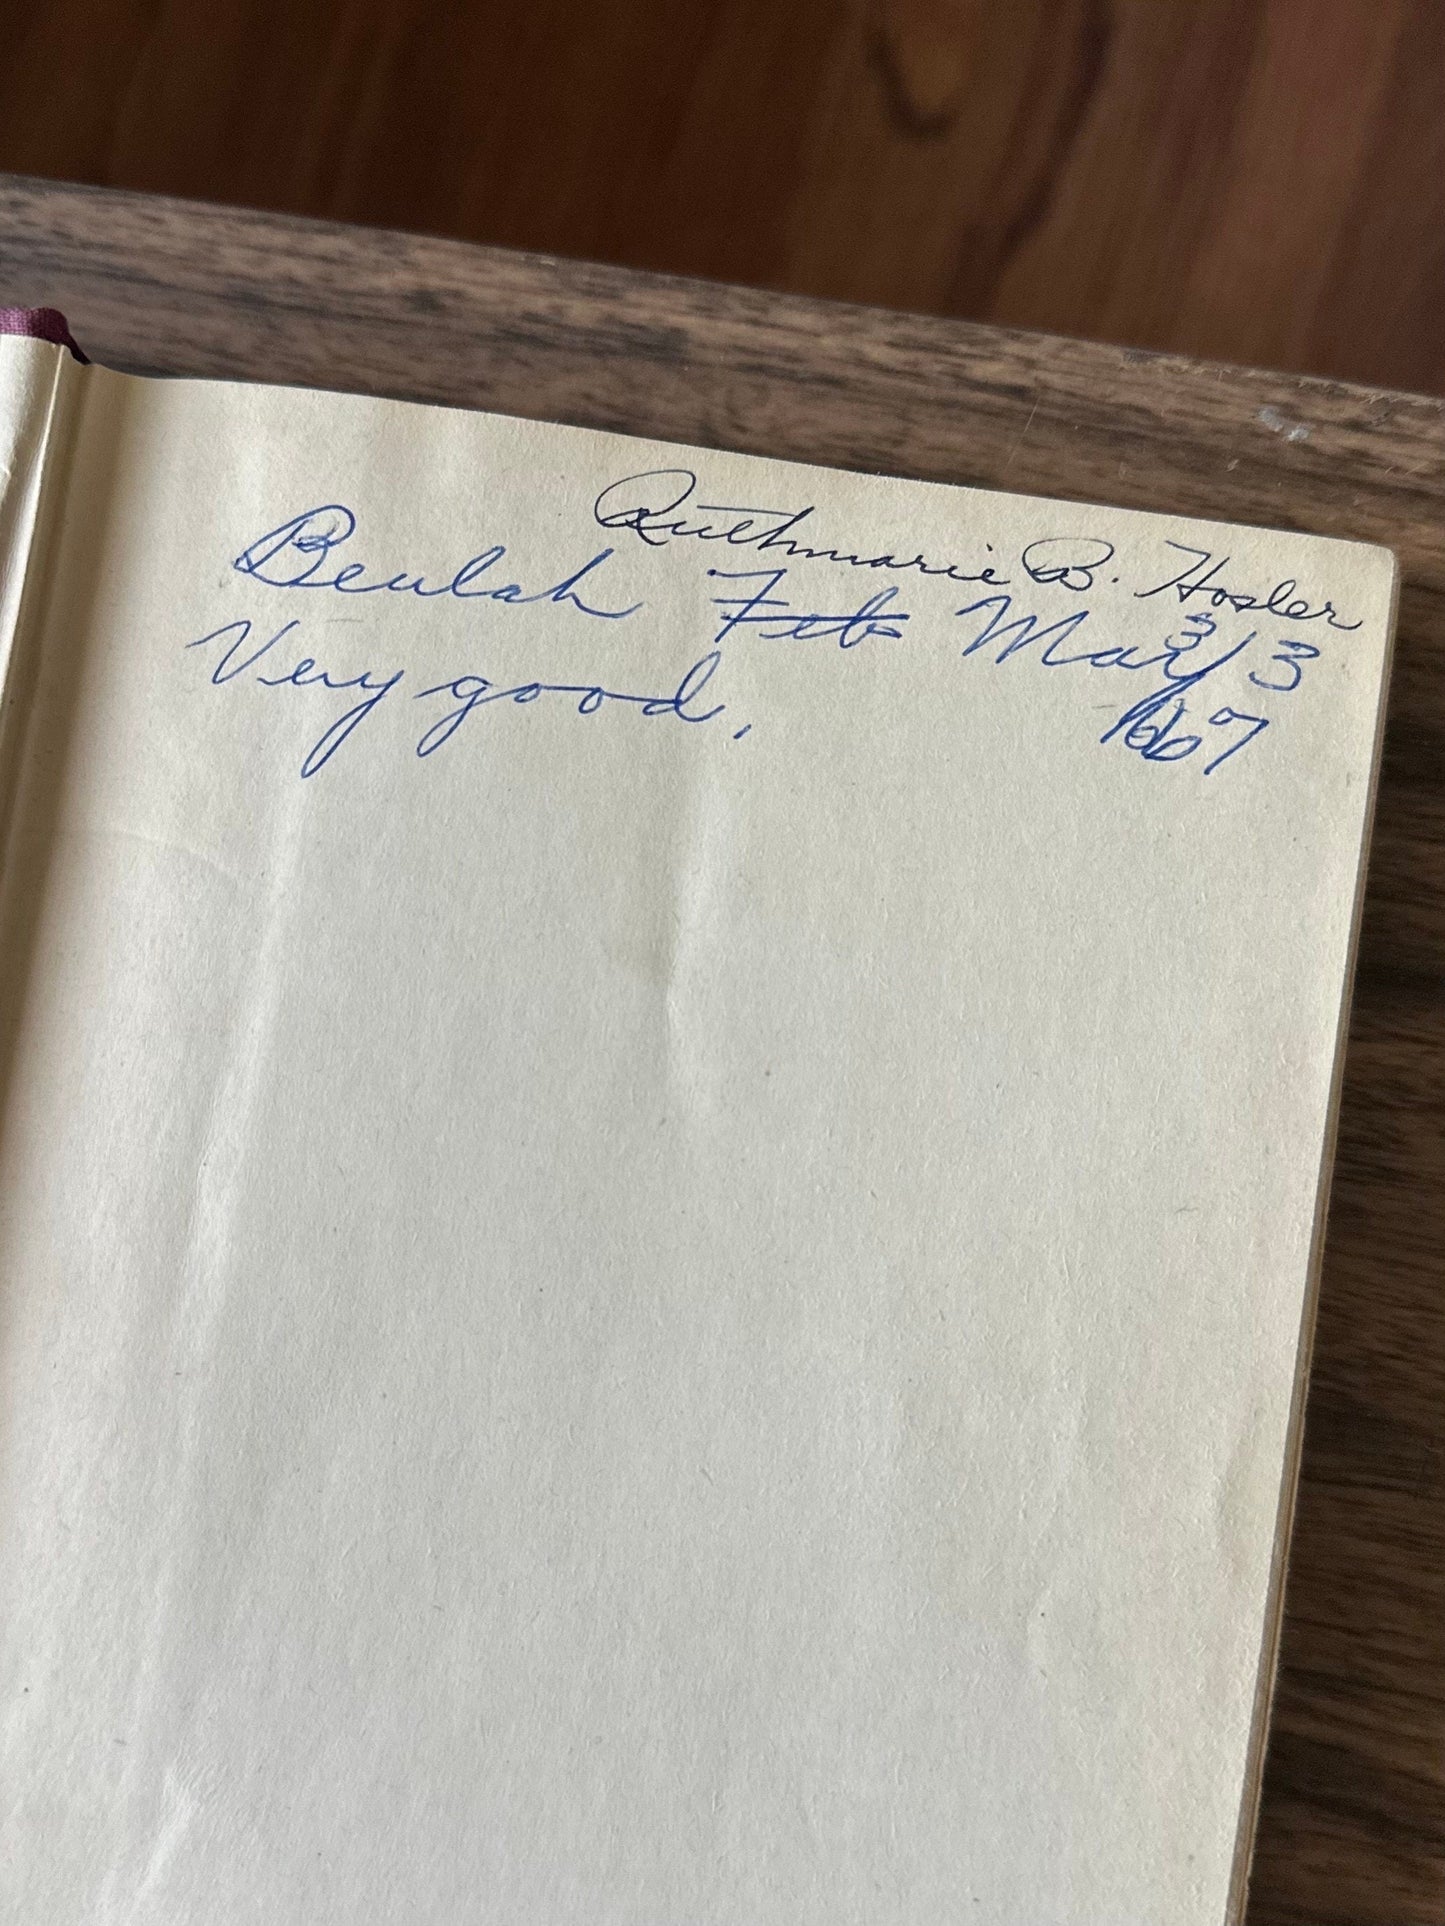 Ruthmarie B. Hosler
Beulah Feb Mar 3
Very good. 67